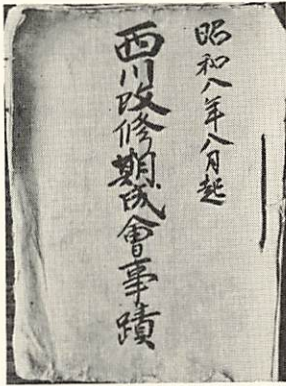 昭和八年八月起
西川改修期成會事蹟